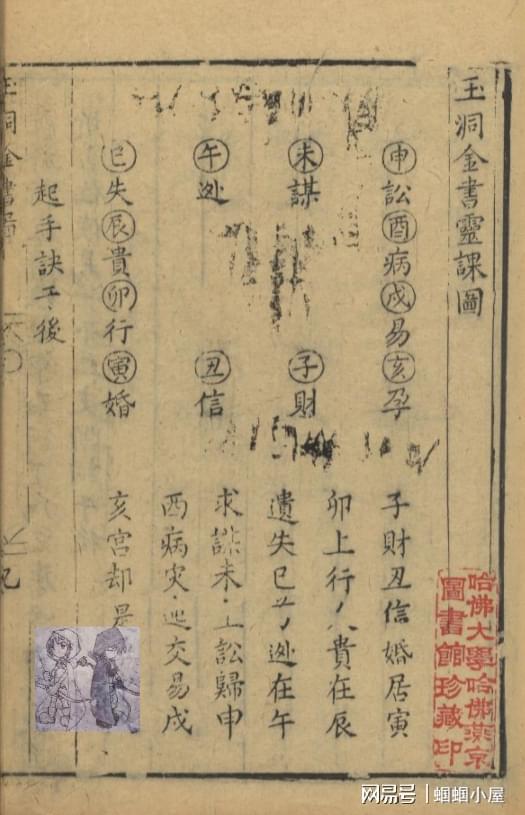 玉洞金書靈課圖
申訟酉病戌易亥孕
未謀
子財
午迯
丑信
巳失辰貴卯行寅婚
子財丑信婚居寅
卯上行貴在辰
遺失巳迯在午
求謀未訟歸申
酉病灾交易戌
亥宮却是
起手訣後
玉洞金書
哈佛大學哈佛燕京
圖書館珍藏印
网易号 | 蝈蝈小屋